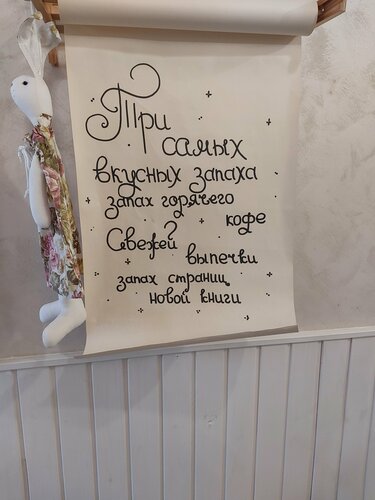 Три
самых
вкусных запаха
запах горячего
кофе
Свежей
выпечки
запах страниц
новой книги